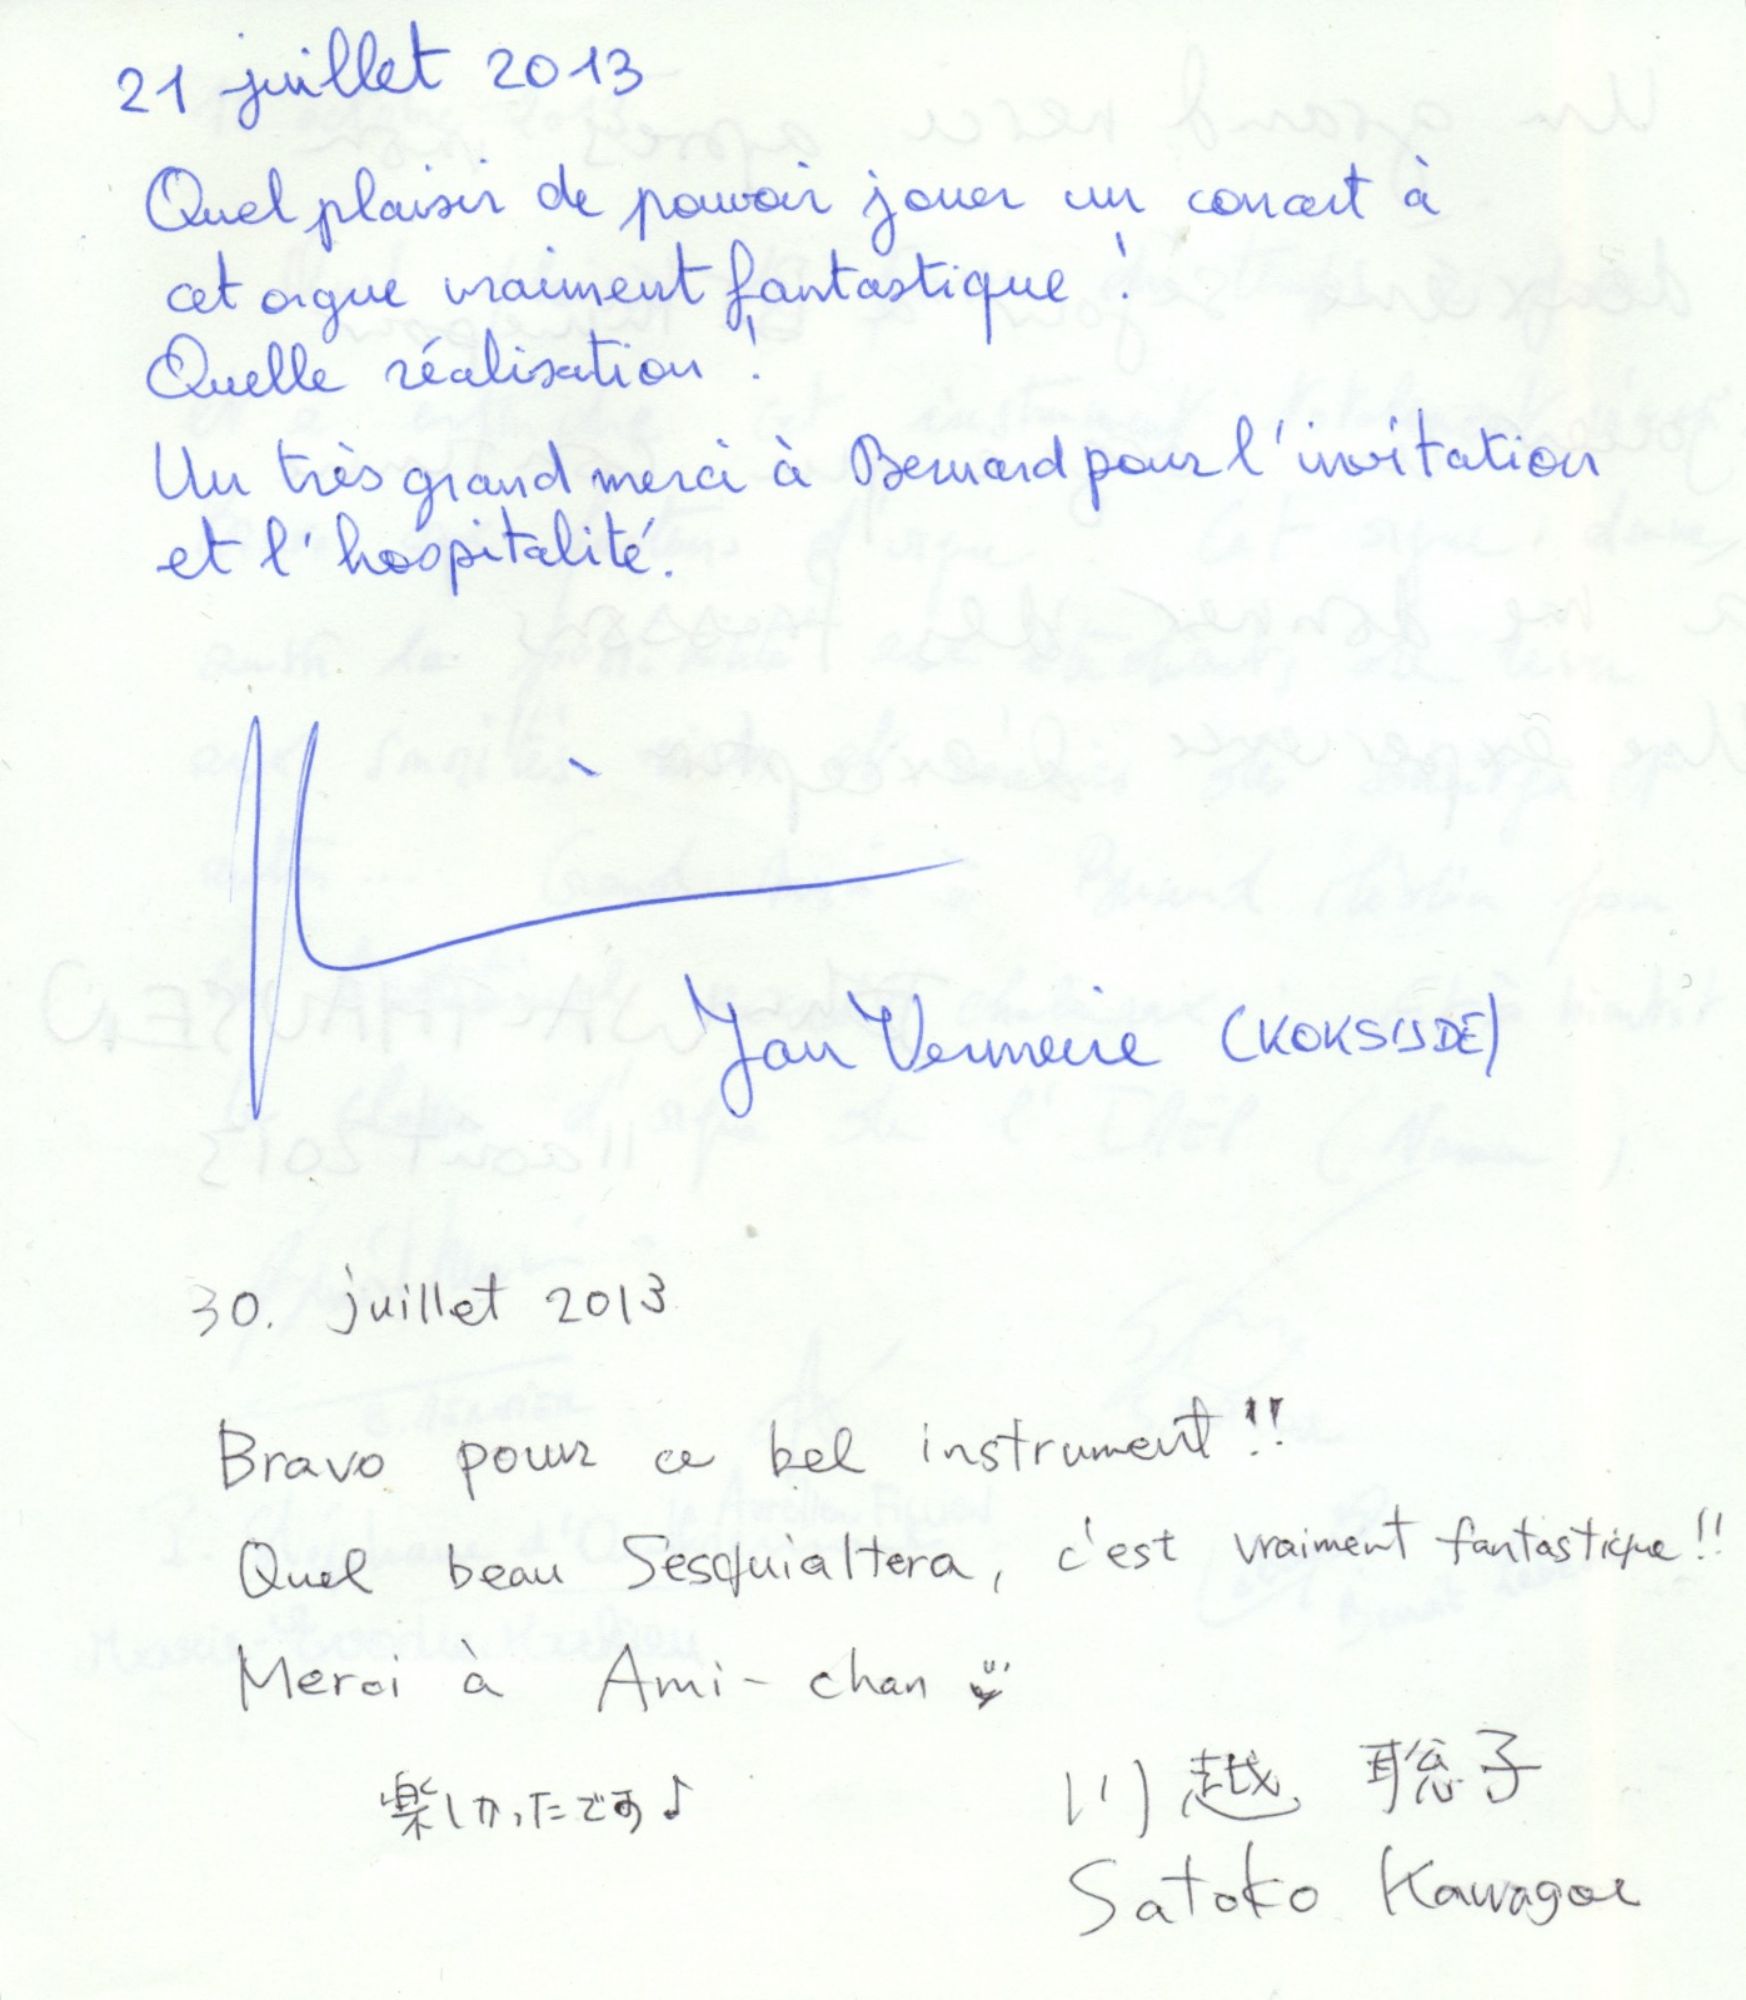 21 juillet 2013
Quel plaisir de pouvoir jouer un concert à
cet orgue vraiment fantastique !
Quelle réalisation !
Un très grand merci à Bernard pour l'invitation
et l'hospitalité.
Jan Vermeire (KOKSIJDE)
30. juillet 2013
Bravo pour ce bel instrument !!
Quel beau Sesquialtera, c'est vraiment fantastique !!
Merci à Ami-chan
楽しかったです♪
川越 聡子
Satoko Kawagoe